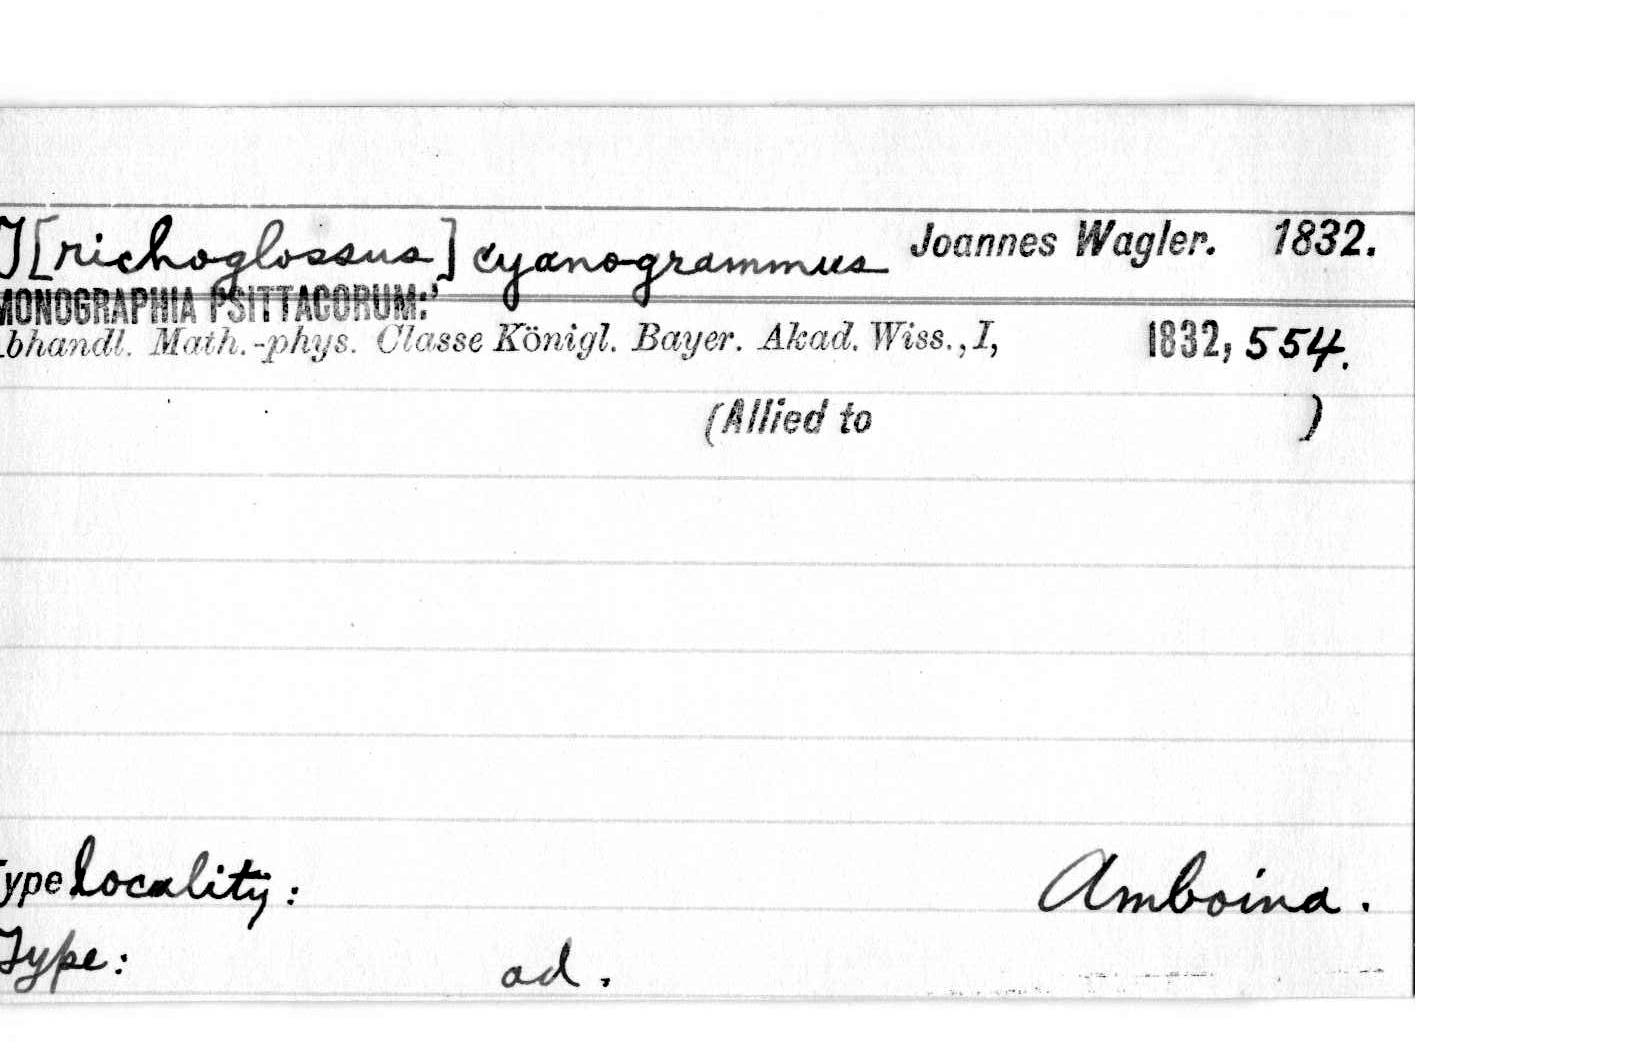 T[richoglossus] cyanogrammus Joannes Wagler. 1832.
MONOGRAPHIA PSITTACORUM:'
bhandl. Math.-phys. Classe Königl. Bayer. Akad. Wiss., I, 1832, 554.
(Allied to )
ype locality: Amboina.
Type: ad.